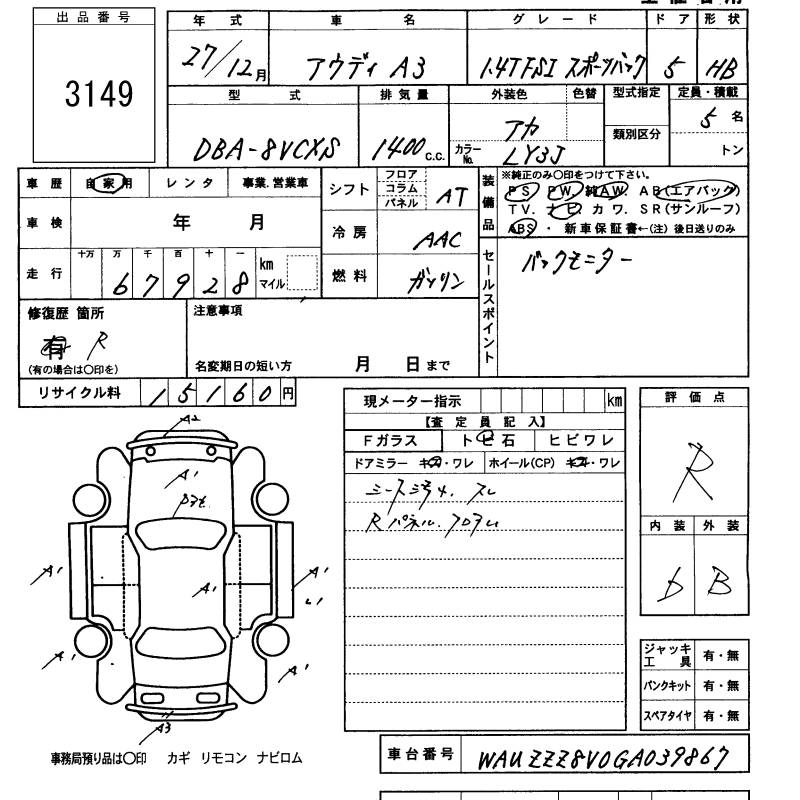 出品番号
3149
年式 車名 グレード ドア 形状
27/12月 アウディ A3 1.4TFSI スポーツバック 5 HB
型式 排気量 外装色 色替 型式指定 定員・積載
DBA-8VCXS 1400 c.c. アカ 類別区分 5 名
カラーNo. LY3J トン
車歴 自家用 レンタ 事業.営業車
車検 年 月
走行 十万 万 千 百 十 一 km マイル
67928
シフト フロア コラム パネル AT
冷房 AAC
燃料 ガソリン
装備品 ※純正のみ〇印をつけて下さい。
PS PW 純AW. AB(エアバック)
TV. ナビ カワ. SR(サンルーフ)
ABS ・ 新車保証書←(注)後日送りのみ
セールスポイント
バックモニター
修復歴 箇所
有 R
(有の場合は〇印を)
注意事項
名変期日の短い方 月 日まで
リサイクル料 15160円
現メーター指示 km
【査定員記入】
Fガラス トビ石 ヒビワレ
ドアミラー キズ・ワレ ホイール(CP) キズ・ワレ
シートヨゴレ、スレ
Rパネル、フロアム
評価点
R
内装 外装
D B
A2
A1
A1
A1
A1
A1
A1
A3
ジャッキ工具 有・無
パンクキット 有・無
スペアタイヤ 有・無
事務局預り品は〇印 カギ リモコン ナビロム
車台番号 WAUZZZ8V0GA039867